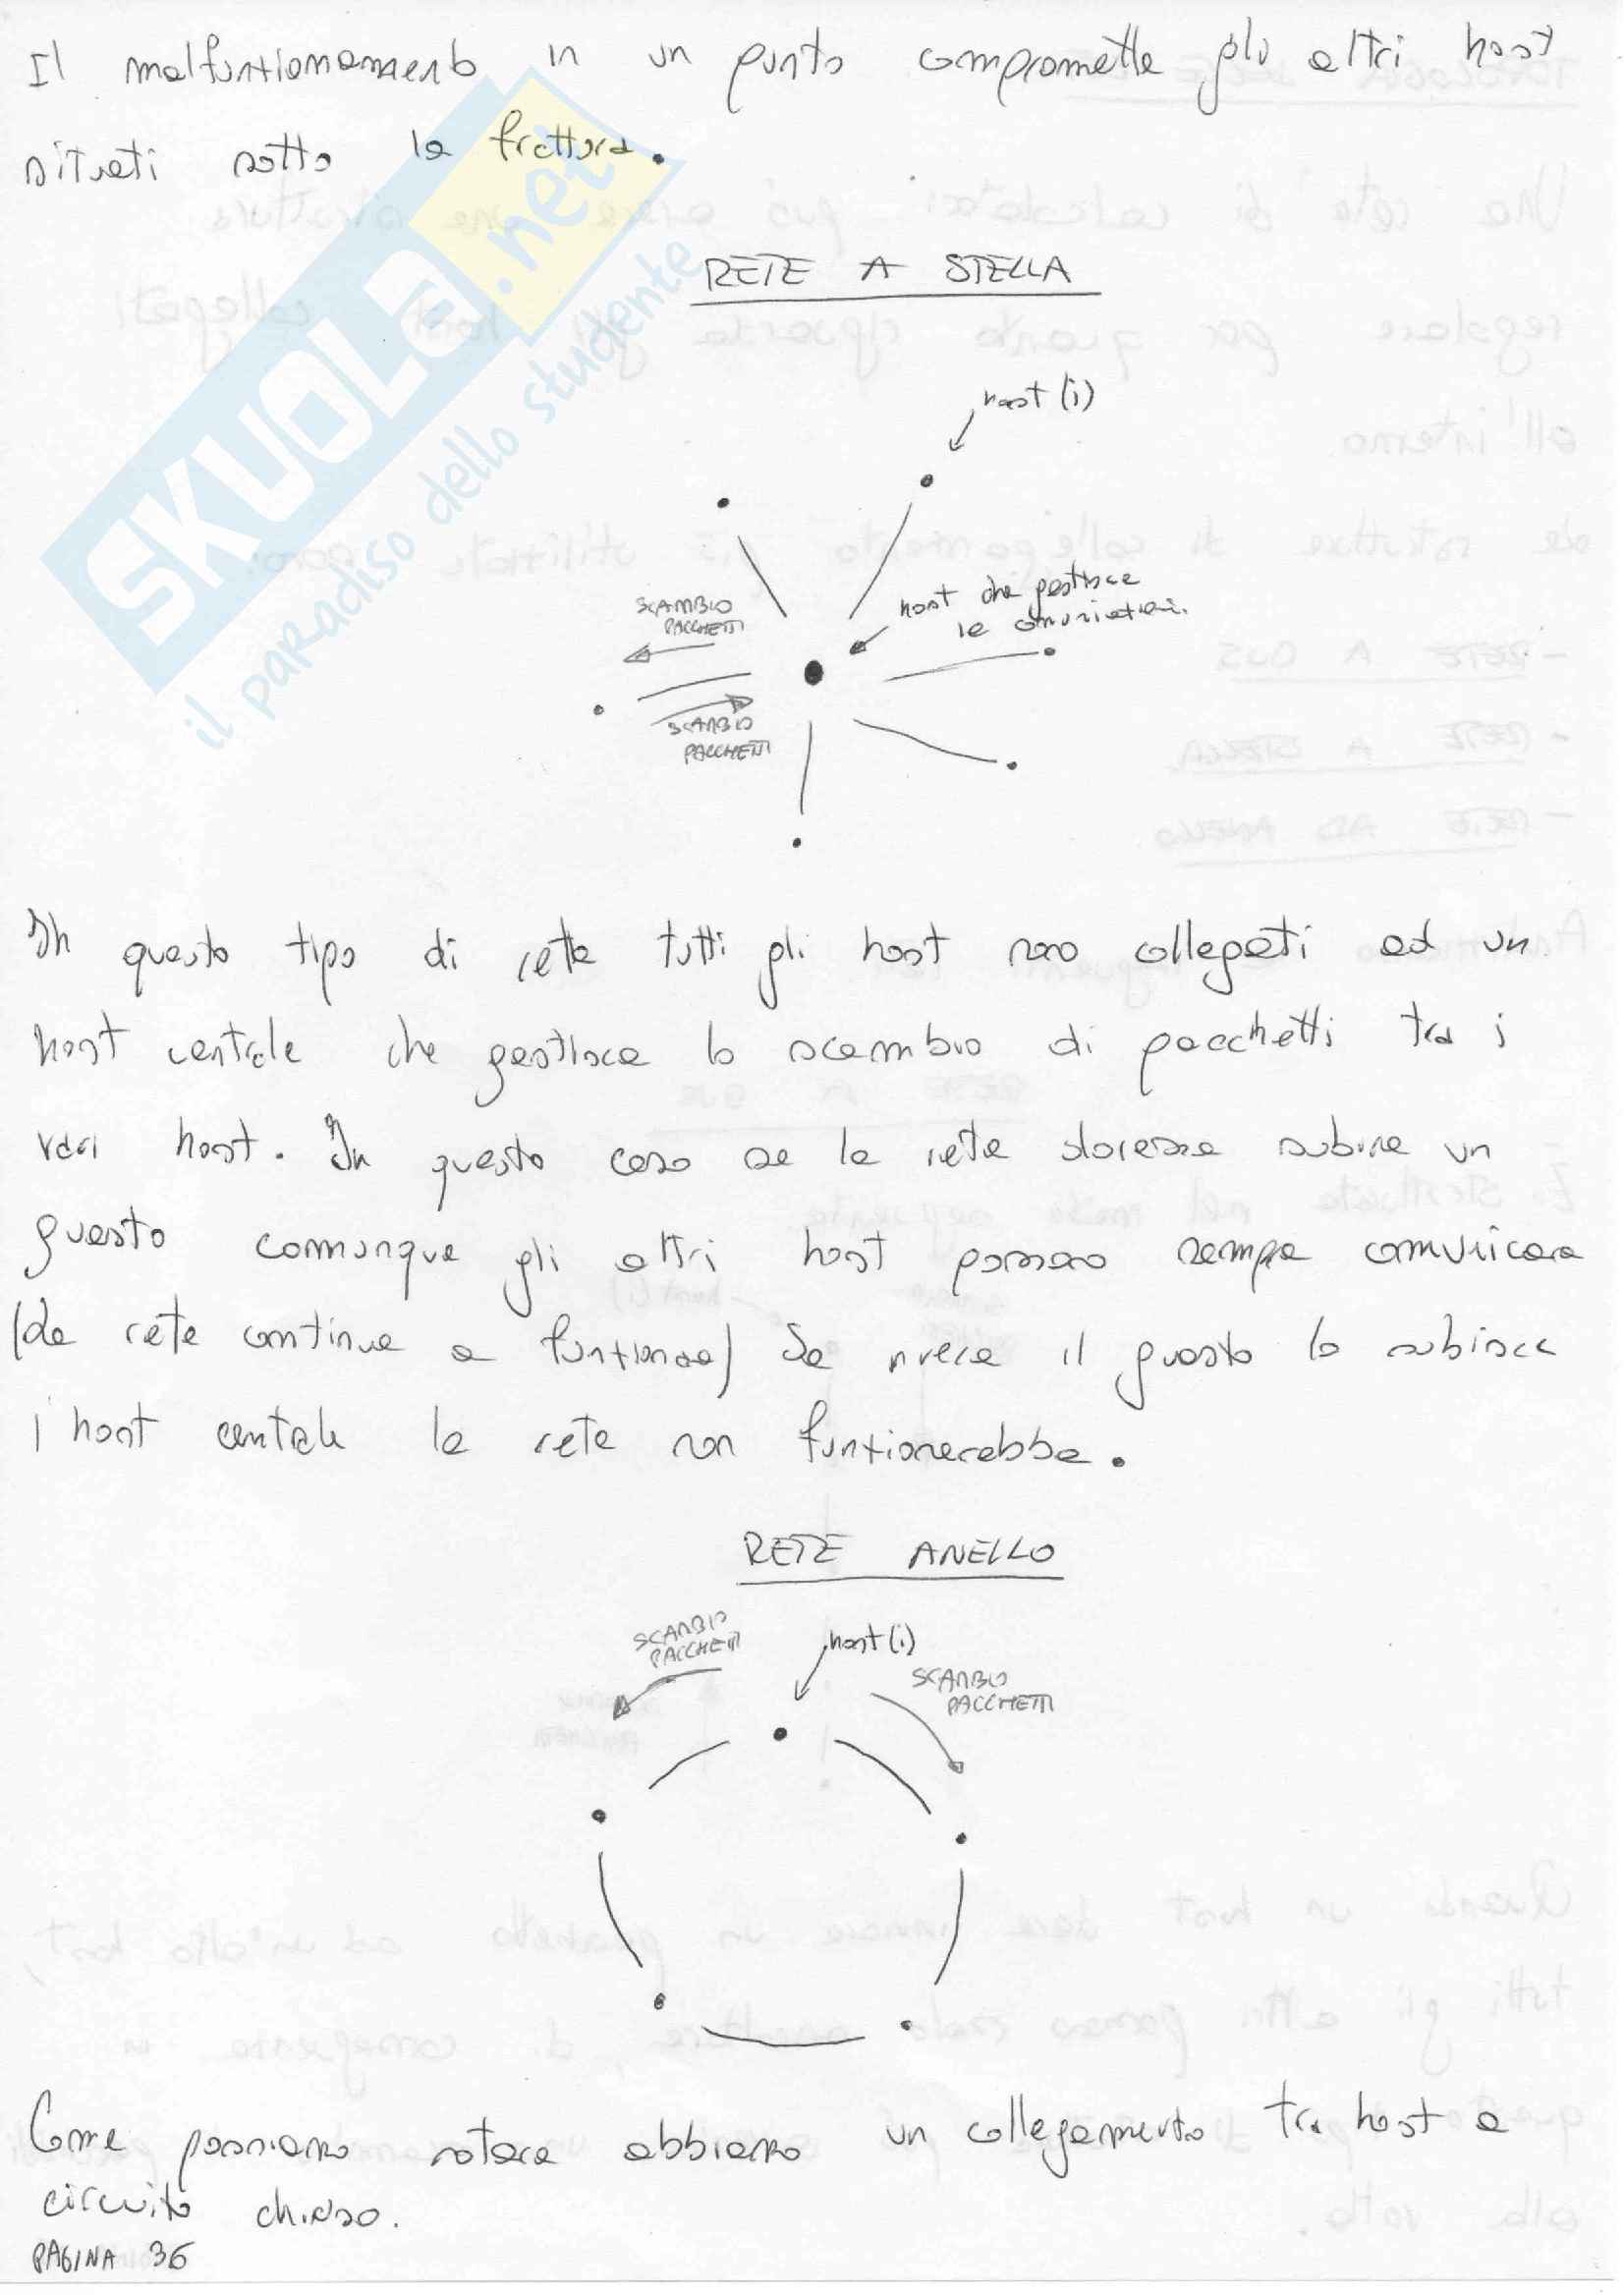 Il malfunzionamento in un punto compromette gli altri host
situati sotto la frattura.
SKUOLA.net
il paradiso dello studente
RETE A STELLA
host (i)
host che gestisce
le comunicazioni.
SCAMBIO
PACCHETTI
SCAMBIO
PACCHETTI
In questo tipo di rete tutti gli host sono collegati ad un
host centrale che gestisce lo scambio di pacchetti tra i
vari host. In questo caso se la rete dovesse subire un
guasto comunque gli altri host possono sempre comunicare
(la rete continua a funzionare) Se invece il guasto lo subisce
l'host centrale la rete non funzionerebbe.
RETE ANELLO
SCAMBIO
PACCHETTI
host (i)
SCAMBIO
PACCHETTI
Come possiamo notare abbiamo un collegamento tra host a
circuito chiuso.
PAGINA 36